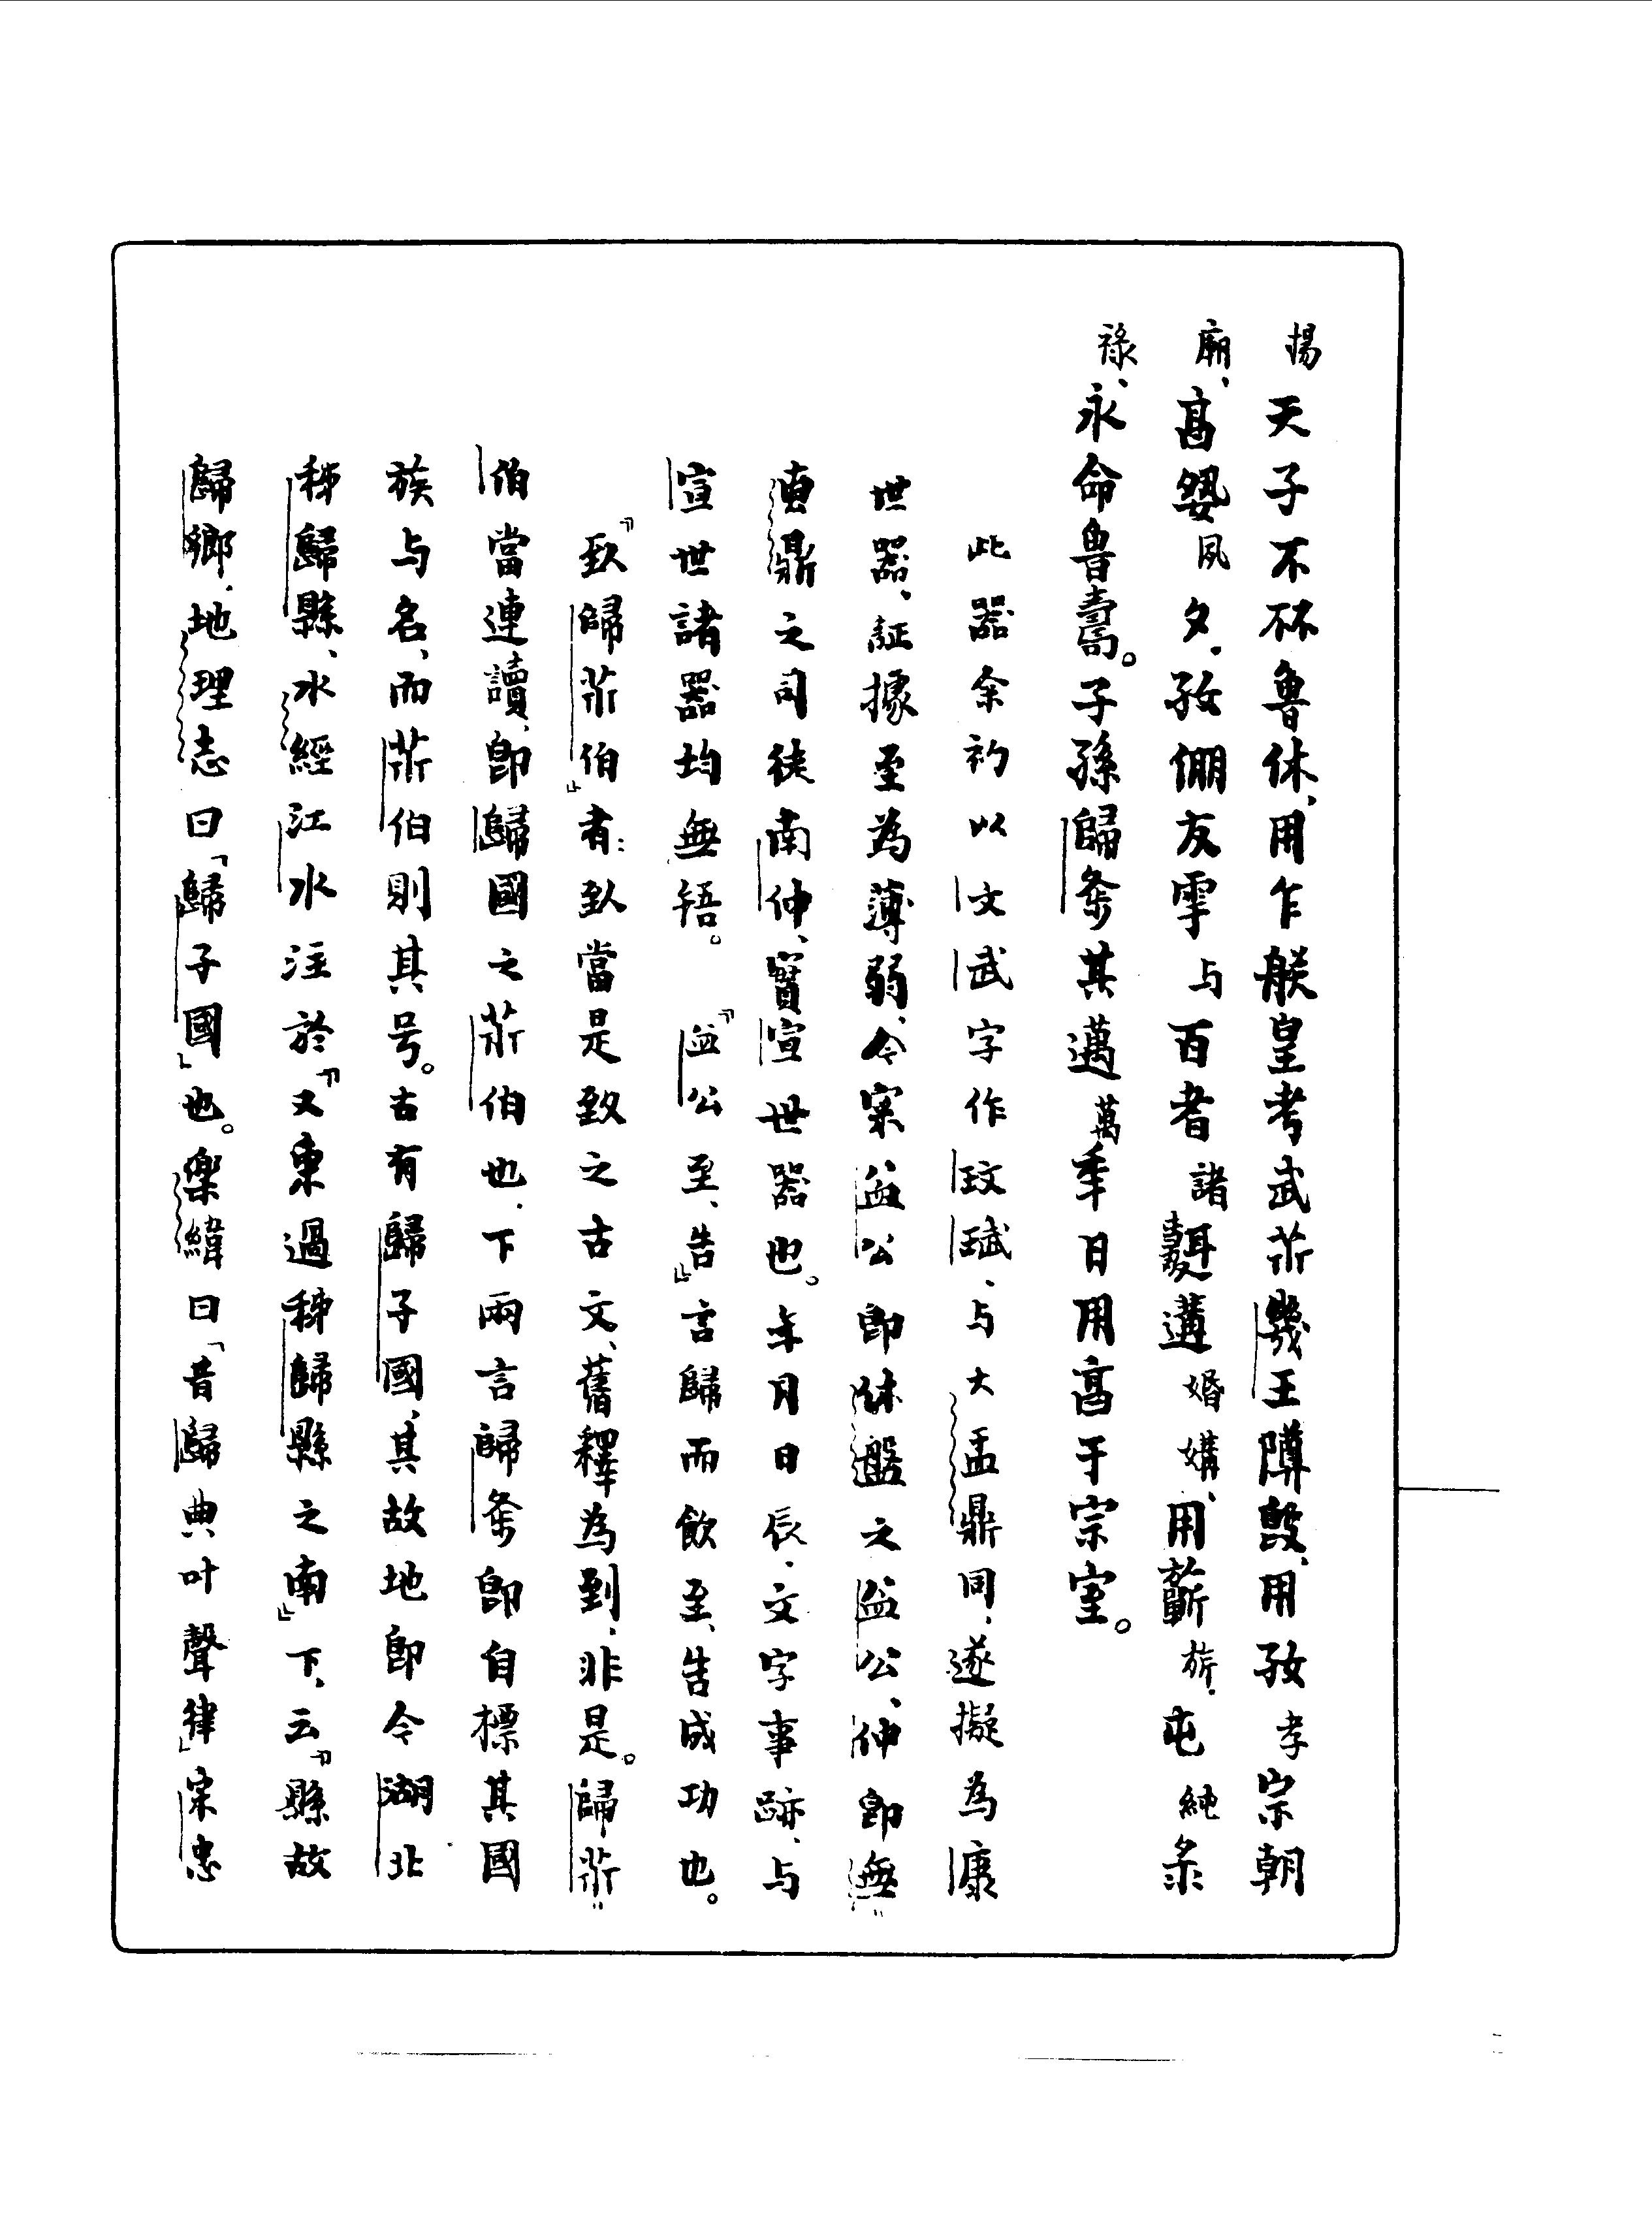 揚天子不㔻魯休、用乍朕皇考武𢆶幾王䵼𣪘、用孜孝宗朝
廟、高夙夕、孜倗友雩与百者諸遘婚媾、用旂、屯純彔
祿、永命魯壽。子孫歸夆其邁萬年日用高于宗室。
此器余初以文武字作玟珷、与大盂鼎同、遂擬為康
世器、証據至為薄弱、今案益公即休盤之益公、仲即無
叀鼎之司徒南仲、實宣世器也。年月日辰、文字事跡、与
宣世諸器均無啎。『益公至、告』言歸而飲至、告成功也。
『𦤴歸𢆶伯』者：𦤴當是致之古文、舊釋為到、非是。歸𢆶
伯當連讀、即歸國之𢆶伯也、下兩言歸夆即自標其國
族与名、而𢆶伯則其号。古有歸子國、其故地即今湖北
秭歸縣、水經江水注於『又東過秭歸縣之南』下、云『縣故
歸鄉、地理志曰「歸子國」也。樂緯曰「昔歸典叶聲律」宋忠